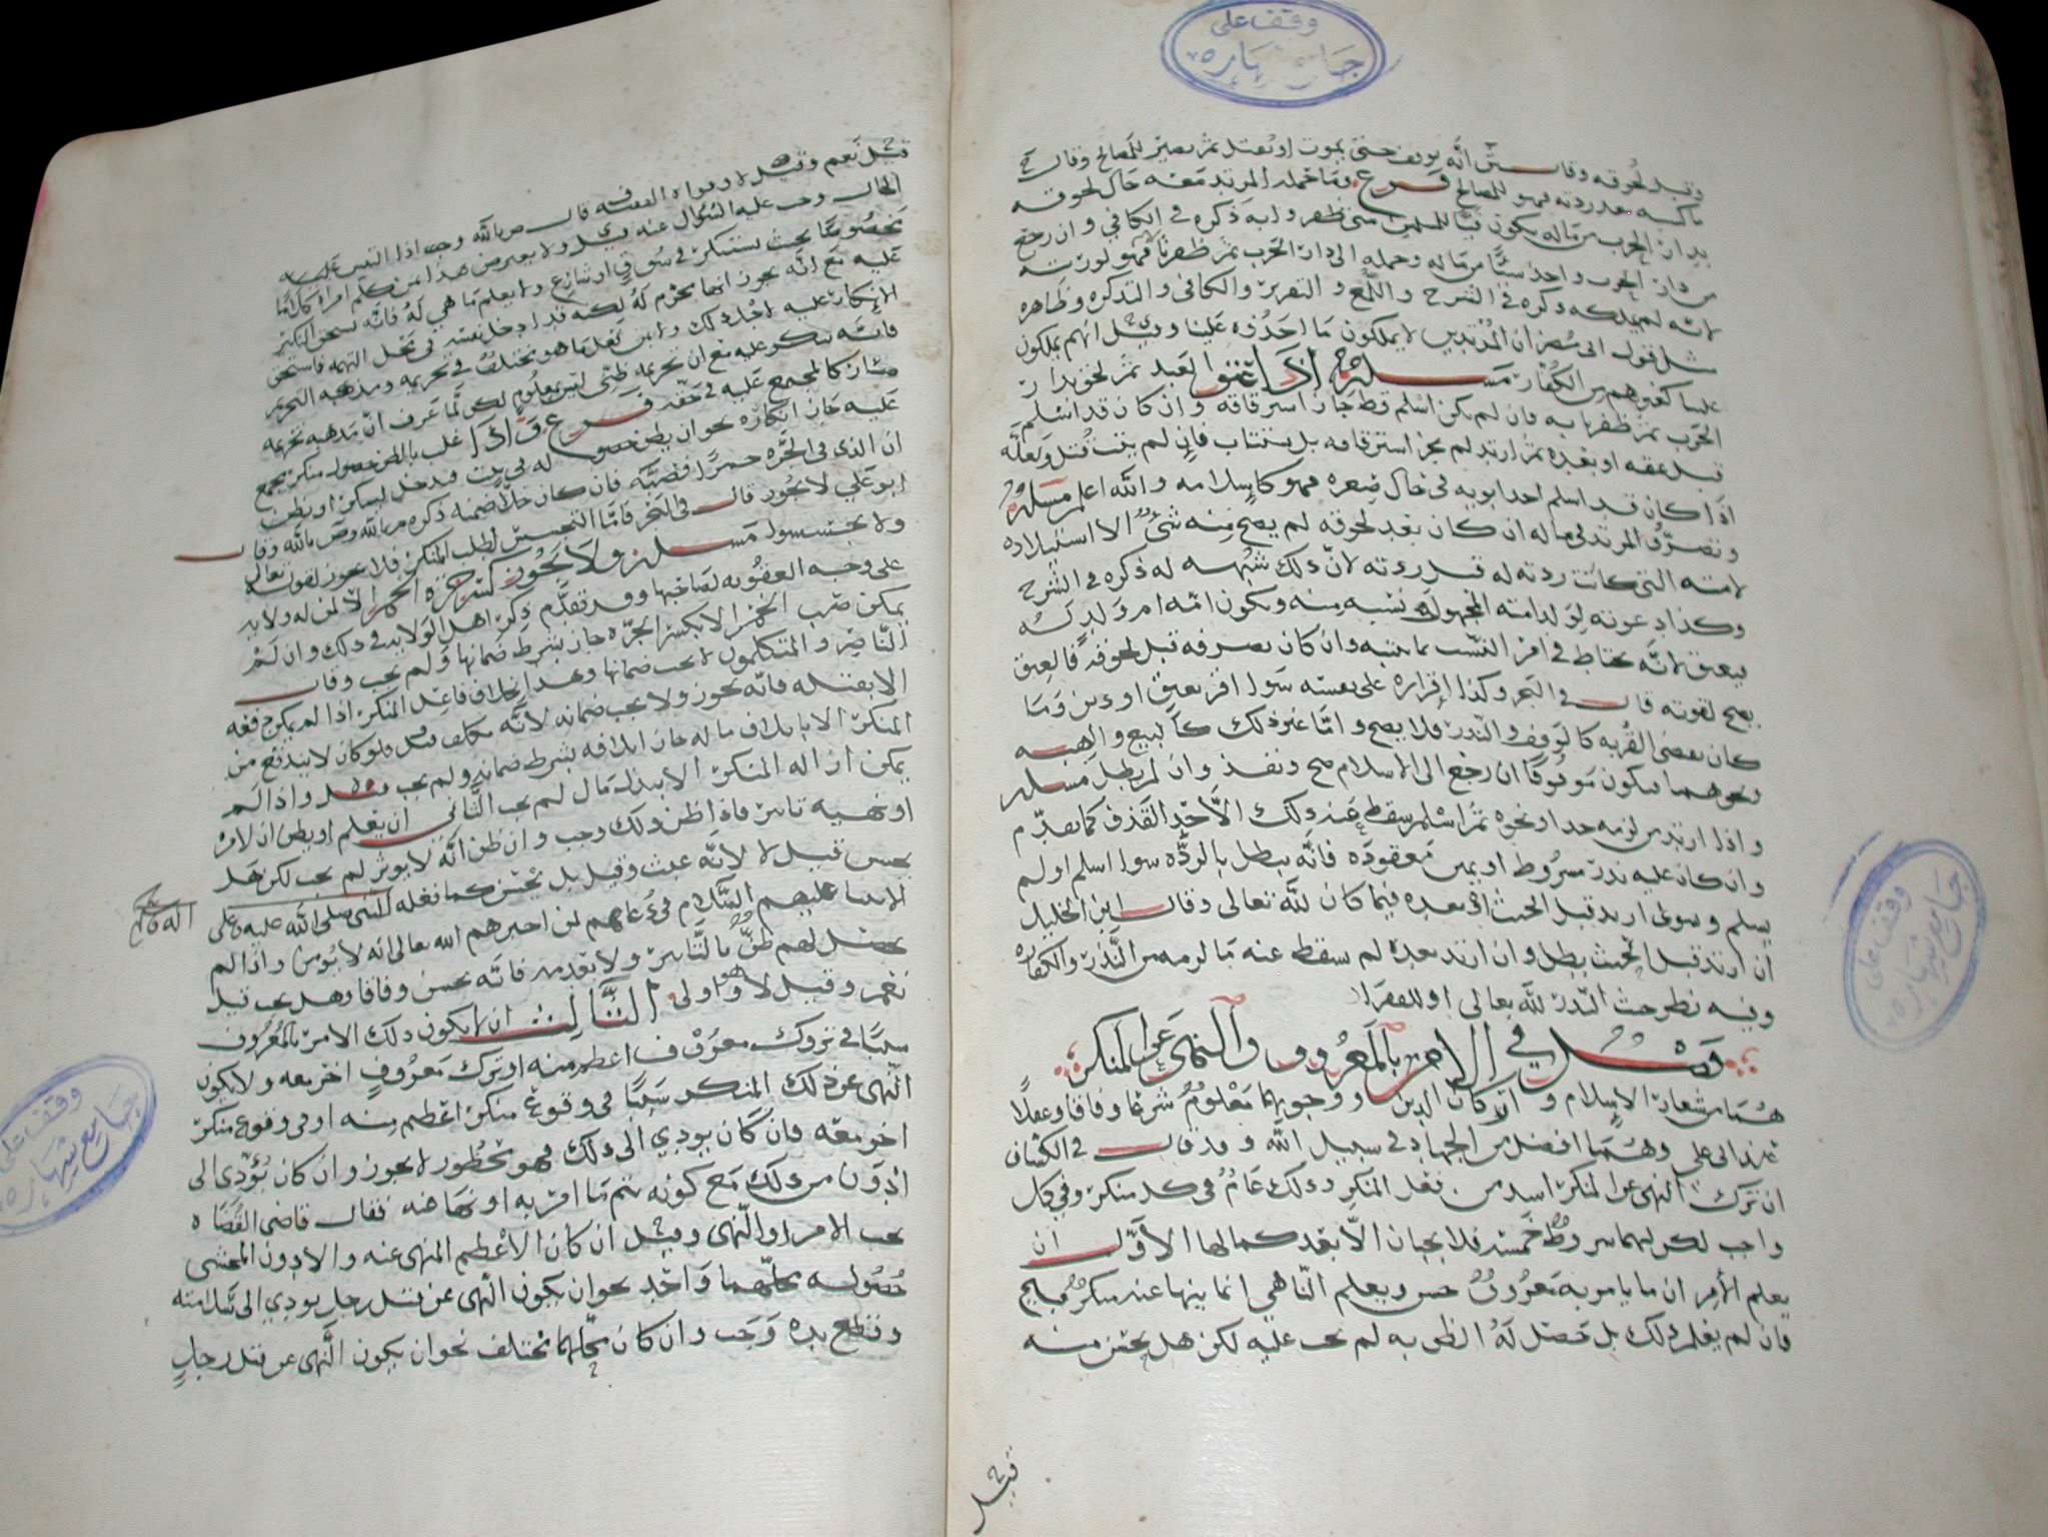 وقف على
جامع شهاره
وقيل لحوقه وقال انه يوقف حتى يموت او يقتل ثم يصير للمصالح وقال ح
ما كسبه بعد ردته فهو للمصالح فرع وما حمله المرتد معه حال لحوقه
بدار الحرب من ماله يكون فيئا للمسلمين متى ظهر وا به ذكره في الكافي وان رجع
من دار الحرب واخذ شيئا من ماله وحمله الى دار الحرب ثم ظفرنا فهو لورثته
لانه لم يملكه ذكره في الشرح واللمع والتقرير والكافي والتذكره وظاهره
مثل قول ان المرتدين لا يملكون ما اخذوه علينا وقيل انهم يملكون
علينا كغيرهم من الكفار مسله اذا اعتقوا العبد ثم لحق بدار
الحرب ثم ظفرنا به فان لم يكن اسلم قط جاز استرقاقه وان كان قد اسلم
قبل عتقه او بعده ثم ارتد لم يجز استرقاقه بل يستتاب فان لم يتب قتل ولعله
اذا كان قد اسلم احد ابويه في حال صغره فهو كاسلامه والله اعلم مسله
وتصرف المرتد في ماله ان كان بعد لحوقه لم يصح منه شئ الا استيلاده
لامته التي كانت ردته له قبل ردته لان ذلك شبهه له ذكره في الشرح
وكذا دعوته لولد امته المجهول نسبه منه ويكون امه ام ولد له
يعتق لانه يحتاط في امر النسب وان كان تصرفه قبل لحوقه فالعتق
يصح لقوته قال في البحر وكذا اقراره على نفسه سوا اقر بعتق او دين وما
كان بعض القربه كالوقف والنذر فلا يصح واما غير ذلك كالبيع والهبه
ونحوهما فيكون موقوفا ان رجع الى الاسلام صح ونفذ وان لم بطل مسله
واذا ارتد من لزمه حد او نحوه ثم اسلم سقط عنه ذلك الا حد القذف كما تقدم
وان كان عليه نذر مشروط او يمين معقوده فانه يبطل بالرده سوا اسلم او لم
يسلم وسوى ارتد قبل الحنث او بعده فيما كان لله تعالى وقال ابن الخليل
ان ارتد قبل الحنث بطل وان ارتد بعده لم سقط عنه ما لزمه من النذر والكفاره
وفيه نظر حيث النذر لله تعالى او للفقرا
فصل في الامر بالمعروف والنهي عن المنكر
هما من شعار الاسلام واركان الدين ووجوبهما معلوم شرعا وفاقا وعقلا
عند ابي علي وهما افضل من الجهاد في سبيل الله وقد قال في الكشاف
ان ترك النهي عن المنكر اشد من فعل المنكر وذلك عام في كل منكر وفي كل
واجب لكن لهما شروط خمسه فلا يجبان الا بعد كمالها الاول ان
يعلم الآمر ان ما يامر به معروف حسن ويعلم الناهي انما ينها عنه منكر قبيح
فان لم يعلم ذلك بل حصل له الظن به لم يجب عليه لكن هل يحسن منه
قيل
وقف على
جامع شهاره
قيل نعم وقيل لا وقواه الفقيه قال صربالله وجب اذا التبس عليه
الحال وجب عليه السؤال عنه قيل ولا يعرض هذا من كلم امراة كلاما
مخصوصا بحيث يستنكر في سوق او شارع ولا يعلم ما هي له فانه يستحق النكير
عليه مع انه يجوز انها محرم له لكنه قد ادخل نفسه في محل التهمه فاستحق
الانكار عليه لاجل ذلك واما من فعل ما هو مختلف في تحريمه ومذهبه التحريم
فانه ينكر عليه مع ان تحريمه ظني ليس بمعلوم لكن لما عرف ان مذهبه تحريمه
صار كالمجمع عليه في حقه فرع واذا غلب بالظن حصول منكر مجمع
عليه جاز انكاره نحو ان يظن حصوله في بيت فيدخل لينكره او يظن
ان الذي في الجره خمرا فصبه فان كان خلا ضمنه ذكره م بالله وض بالله وقال
ابو علي لا يجوز قال في البحر فاما التجسس لطلب المنكر فلا يجوز لقوله تعالى
ولا تجسسوا مسله ولا يجوز كسر جره الخمر الا لمن له ولايه
على وجه العقوبه لصاحبها وقد تقدم ذكر اهل الولايه في ذلك وان لم
يمكن صب الخمر الا بكسر الجره جاز بشرط ضمانها ولم يجب وقال
الناصر والمتكلمون لا يجب ضمانها وهذا بخلاف فاعل المنكر اذا لم يمكن دفعه
الا بقتله فانه يجوز ولا يجب ضمانه لانه مكلف قيل فلو كان لا يندفع من
المنكر الا باتلاف ماله جاز اتلافه بشرط ضمانه ولم يجب قيل واذا لم
يمكن ازاله المنكر الا ببذل مال لم يجب الثاني ان يعلم او يظن ان لامره
او نهيه تاثير فاذا ظن ذلك وجب وان ظن انه لا يوثر لم يجب لكن هل
يحسن قيل لا لانه عبث وقيل بل يحسن كما فعله النبي صلى الله عليه وعلى
اله
الانبيا عليهم السلام في دعائهم لمن اخبرهم الله تعالى انه لا يؤمن واذا لم
يحصل لهم ظن بالتاثير ولا بعدمه فانه يحسن وفاقا وهل يجب قيل
نعم وقيل لا وهو اولى الثالث ان لا يكون ذلك الامر بالمعروف
سببا في تروك معروف اعظم منه او ترك معروف اخر معه ولا يكون
النهي عن ذلك المنكر سببا في وقوع منكر اعظم منه او في وقوع منكر
اخر معه فان كان يودي الى ذلك فهو محظور لا يجوز وان كان يؤدي الى
ادون من ذلك مع كونه يتم ما امر به او نها عنه فقال قاضي القضاه
يجب الامر او النهي وقيل ان كان الاعظم المنهي عنه والادون المخشي
حصوله محلهما واحد نحو ان يكون النهي عن قتل رجل يودي الى سلامته
وقطع يده وجب وان كان محلهما مختلف نحو ان يكون النهي عن قتل رجل
وقف على
جامع شهاره